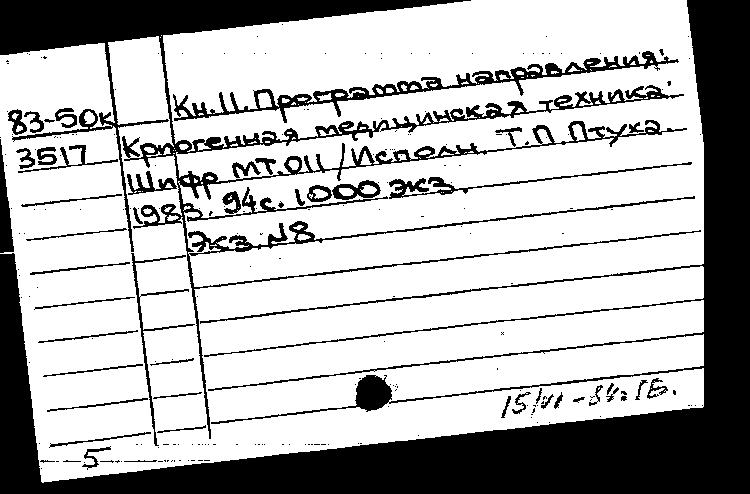 83-50к Кн.11. Программа направления:
3517 Криогенная медицинская техника:
Шифр МТ.011 / Исполн. Т.П.Птуха.
1983. 94с. 1000 экз.
Экз. №8.
15/VI-84г.
5